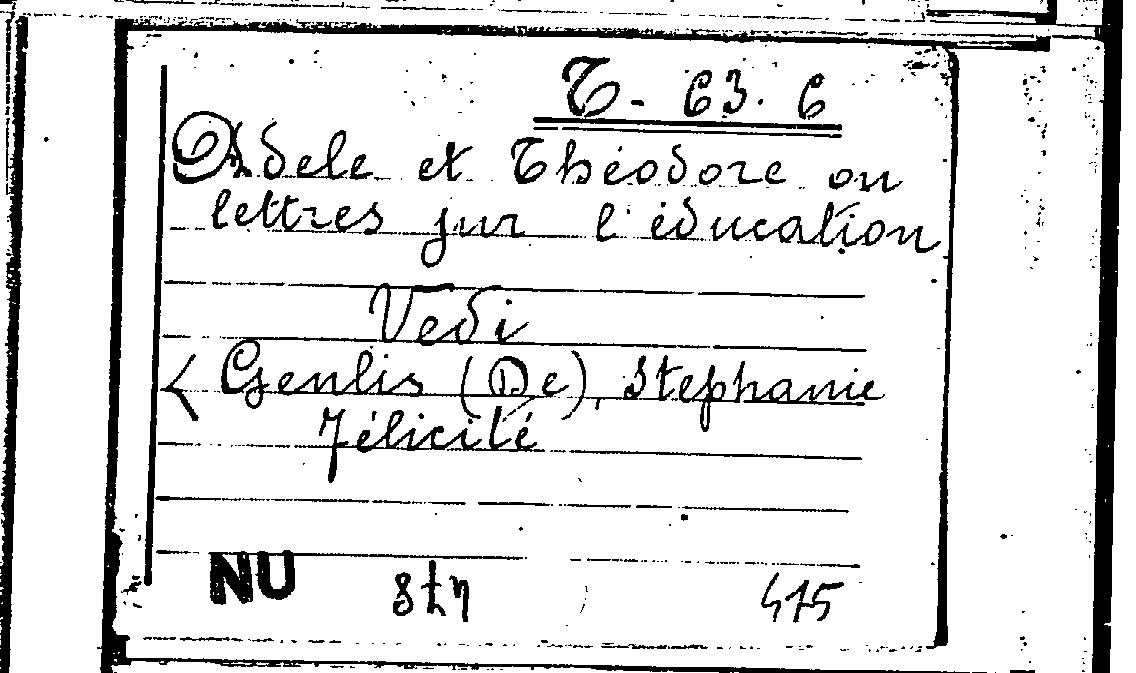 T- 63. 6
Adele et Théodore ou
lettres sur l'éducation
Vedi
< Genlis (De), Stephanie
Félicité
NU
415